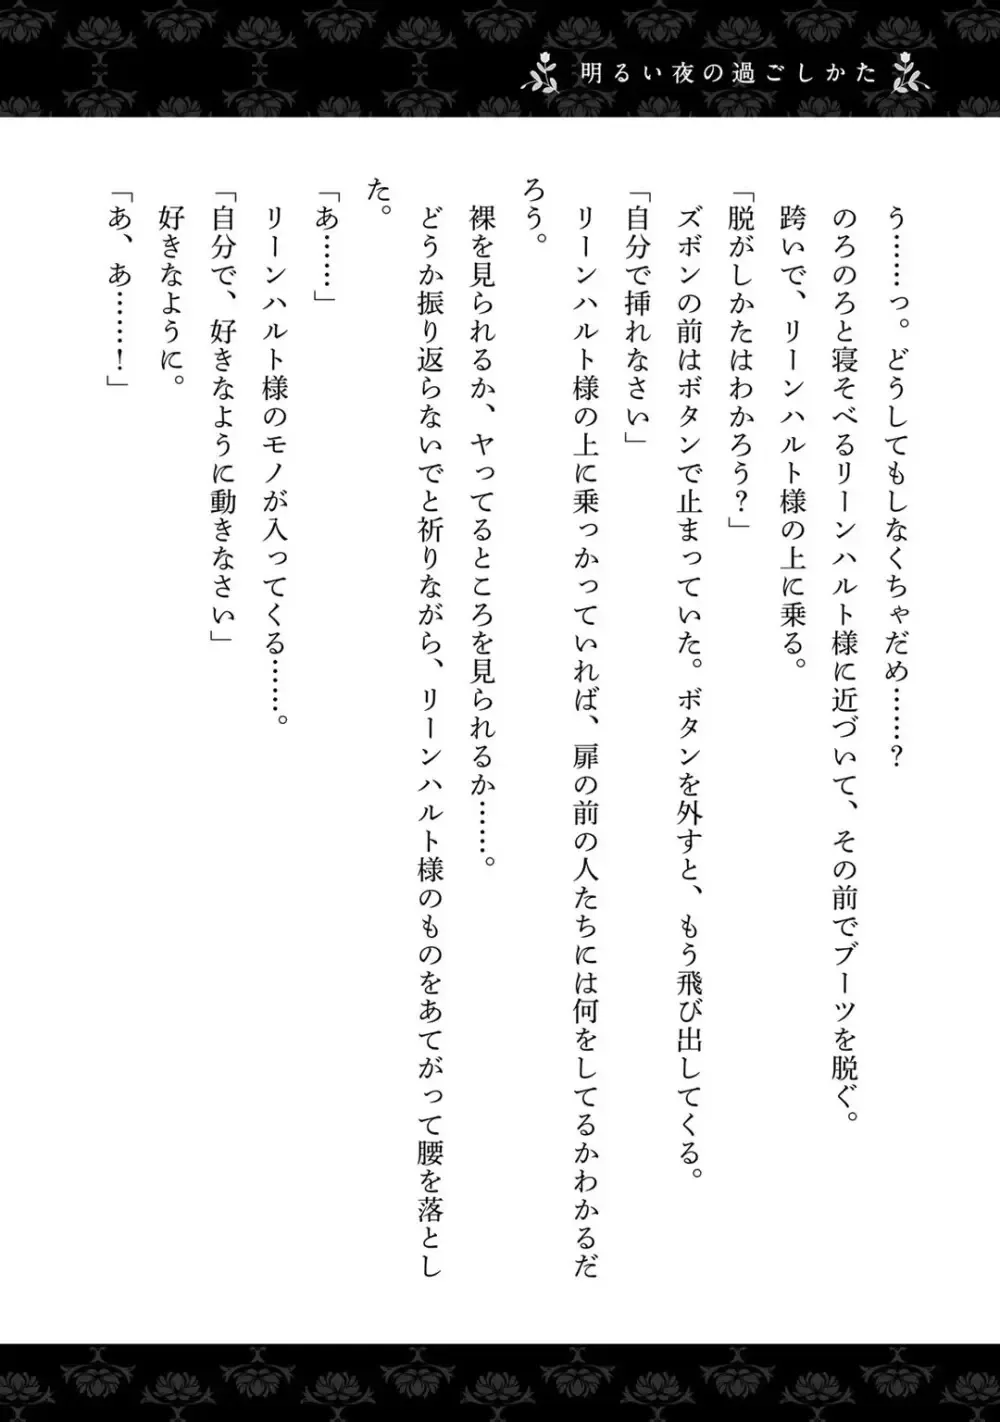 明るい夜の過ごしかた
う……っ。どうしてもしなくちゃだめ……？
のろのろと寝そべるリーンハルト様に近づいて、その前でブーツを脱ぐ。
跨いで、リーンハルト様の上に乗る。
「脱がしかたはわかろう？」
ズボンの前はボタンで止まっていた。ボタンを外すと、もう飛び出してくる。
「自分で挿れなさい」
リーンハルト様の上に乗っかっていれば、扉の前の人たちには何をしてるかわかるだ
ろう。
裸を見られるか、ヤってるところを見られるか……。
どうか振り返らないでと祈りながら、リーンハルト様のものをあてがって腰を落とし
た。
「あ……」
リーンハルト様のモノが入ってくる……。
「自分で、好きなように動きなさい」
好きなように。
「あ、あ……！」